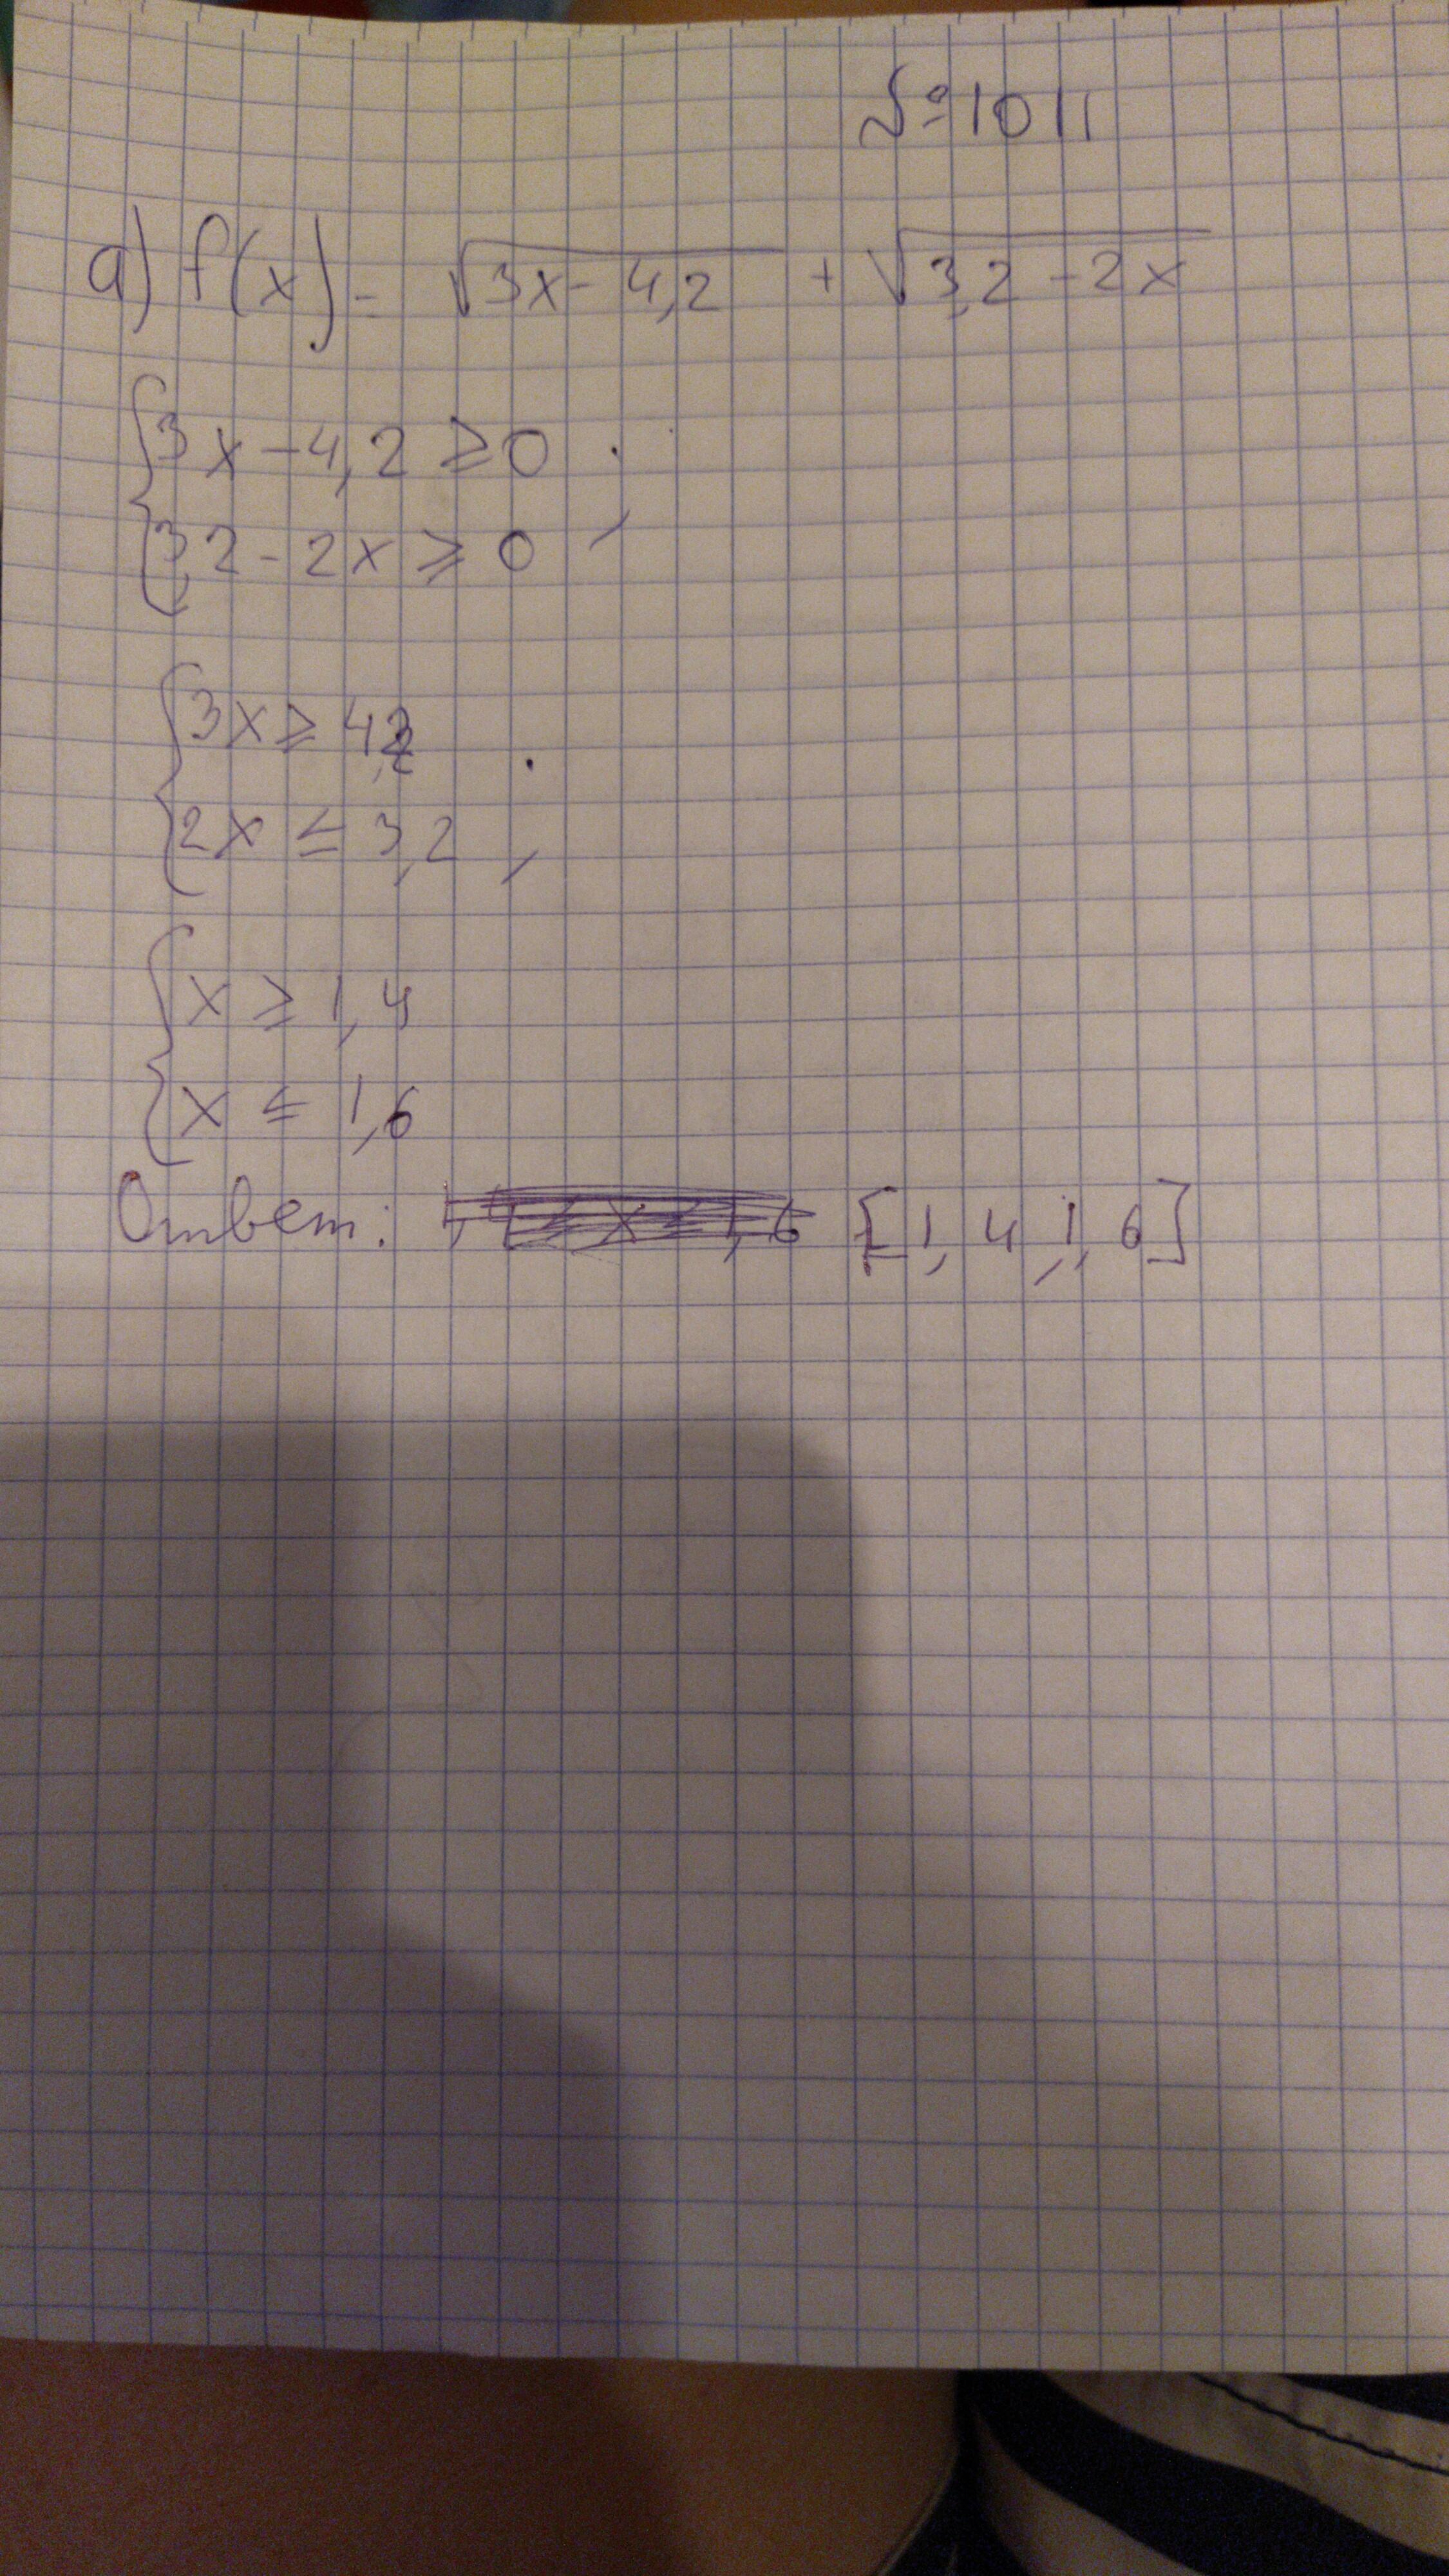 № 1011
а) f(x) = √3x - 4,2 + √3,2 - 2x
3x - 4,2 ≥ 0 ;
3,2 - 2x ≥ 0
3x ≥ 4,2 ;
2x ≤ 3,2
x ≥ 1,4
x ≤ 1,6
Ответ: [1,4 ; 1,6]